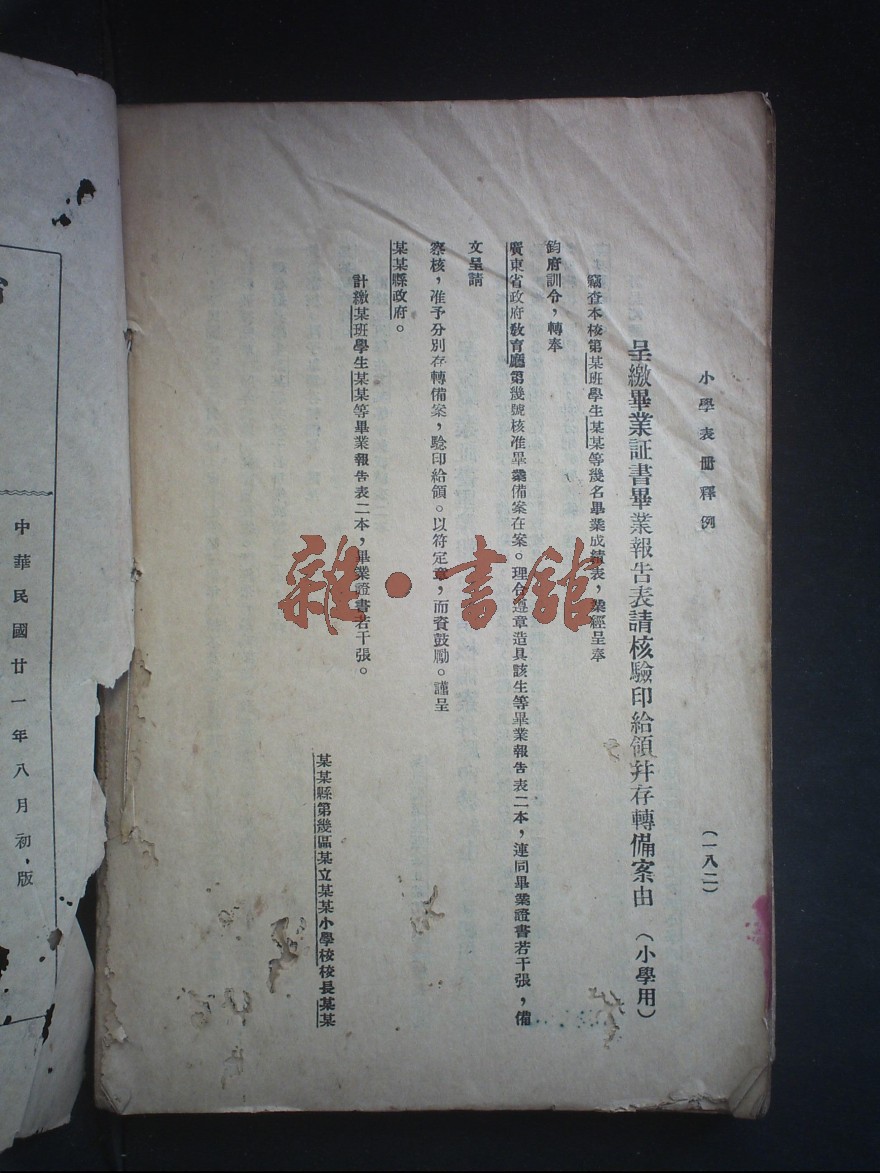 小學表册釋例
（一八二）
呈繳畢業証書畢業報告表請核驗印給領幷存轉備案由 （小學用）
竊查本校第某班學生某某等幾名畢業成績表，業經呈奉
鈞府訓令，轉奉
廣東省政府敎育廳第幾號核准畢業備案在案。理合遵章造具該生等畢業報告表二本，連同畢業證書若干張，備
文呈請
察核，准予分別存轉備案，驗印給領。以符定章，而資鼓勵。謹呈
某某縣政府。
計繳某班學生某某等畢業報告表二本，畢業證書若干張。
某某縣第幾區某立某某小學校校長某某
雜·書舘
中華民國廿一年八月初，版